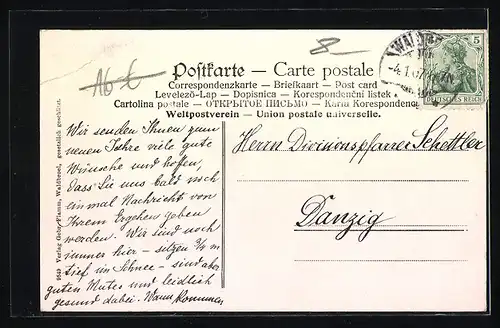 Ab 6
8
Postkarte — Carte postale
Correspondenzkarte — Briefkaart — Post card
Levelező-Lap — Dopisnica — Korespondenční lístek
Cartolina postale — ОТКРЫТОЕ ПИСЬМО — Karta Korespondenc
Weltpostverein — Union postale universelle.
5
DEUTSCHES REICH
Wir senden Ihnen zum
neuen Jahre viele gute
Wünsche und hoffen,
dass Sie uns bald noch
einmal Nachricht von
Ihrem Ergehen geben
werden. Wir sind noch
immer hier – sitzen 3/4 m
tief im Schnee – sind aber
guten Mutes und leidlich
gesund dabei. Wann kommen
Herrn Divisionspfarrer Schettler
Danzig
9649 Verlag Gebr. Flamm, Waldkessel, gesetzlich geschützt.